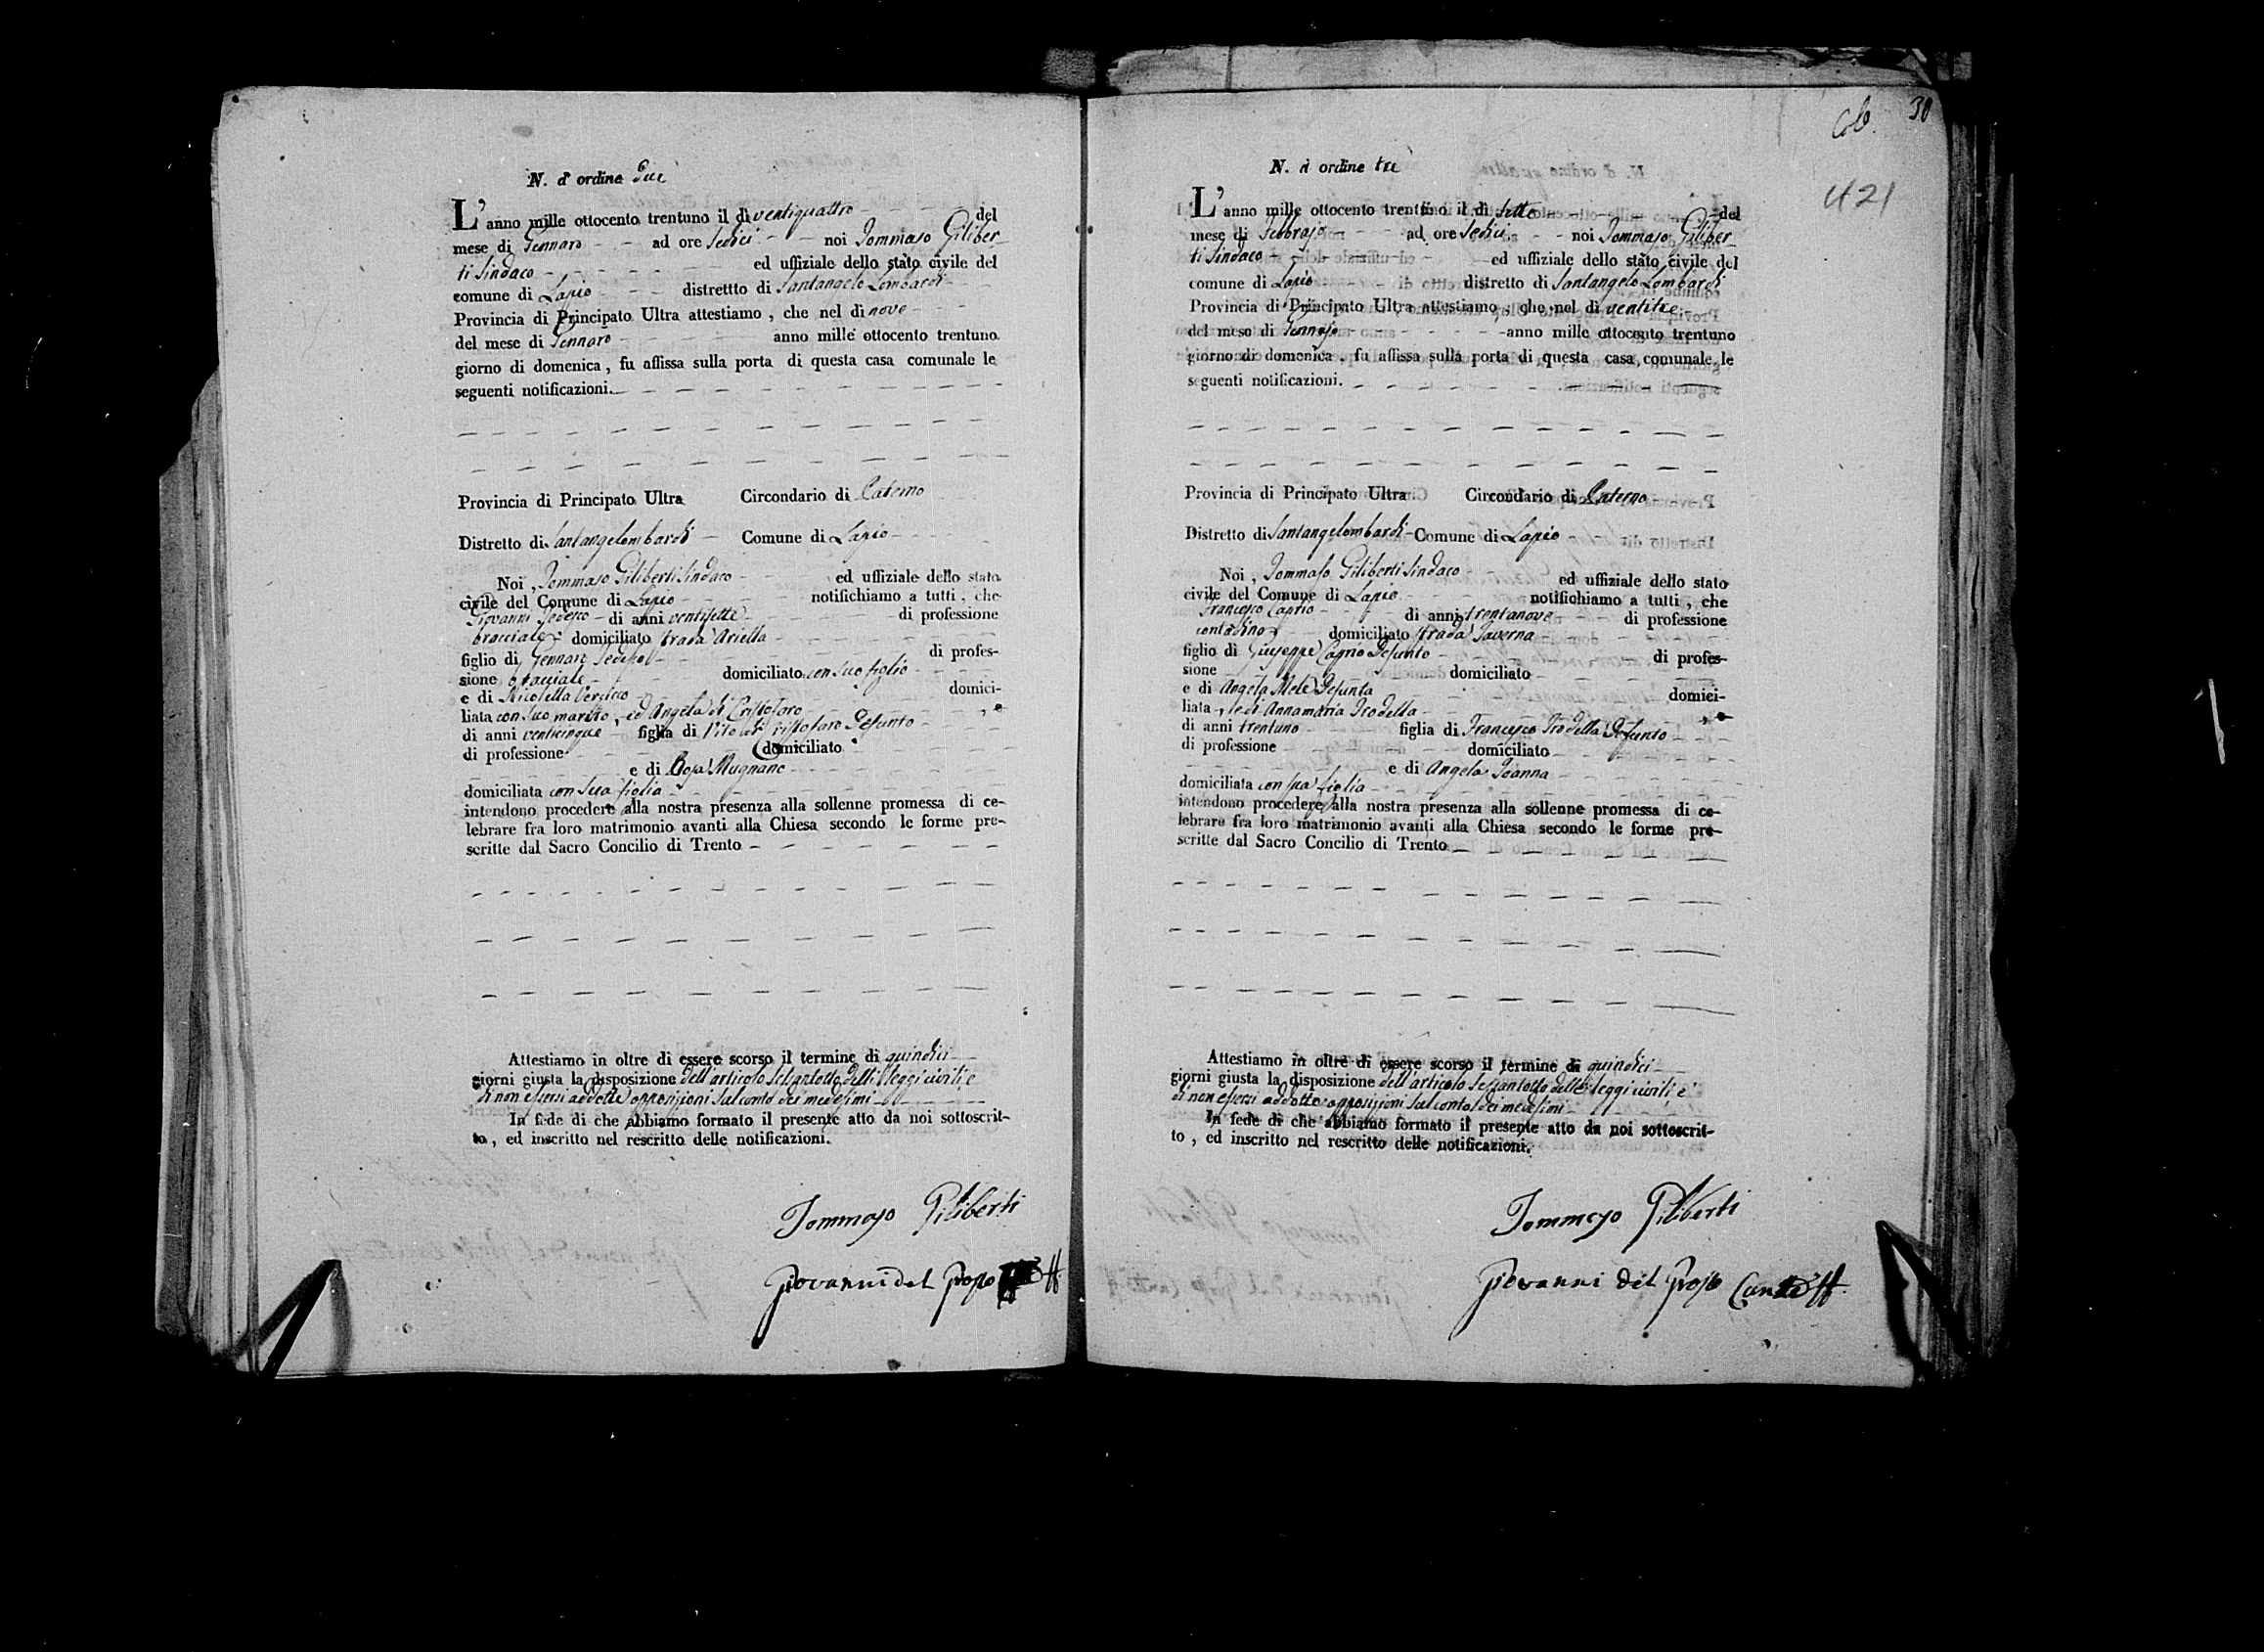 N. d' ordine due
L' anno mille ottocento trentuno il di ventiquattro del
mese di Gennaro ad ore sedici noi Tommaso Giliber
ti Sindaco ed uffiziale dello stato civile del
comune di Lapio distrettto di Santangelo Lombardi
Provincia di Principato Ultra attestiamo, che nel di nove
del mese di Gennaro anno mille ottocento trentuno
giorno di domenica, fu affissa sulla porta di questa casa comunale le
seguenti notificazioni.
Provincia di Principato Ultra Circondario di Paterno
Distretto di Santangelombardi Comune di Lapio
Noi, Tommaso Giliberti Sindaco ed uffiziale dello stato
civile del Comune di Lapio notifichiamo a tutti, che
Giovanni Tedesco di anni ventisette di professione
bracciale domiciliato strada Ariella
figlio di Gennaro Tedesco di profes-
sione bracciale domiciliato con suo figlio
e di Nicolella domici-
liata con suo marito, ed Angela di Cristofaro , e
di anni venticinque figlia di Vito di Cristofaro Defunto
di professione domiciliato
e di Rosa Mugnano
domiciliata con sua figlia
intendono procedere alla nostra presenza alla sollenne promessa di ce-
lebrare fra loro matrimonio avanti alla Chiesa secondo le forme pre-
scritte dal Sacro Concilio di Trento
Attestiamo in oltre di essere scorso il termine di quindici
giorni giusta la disposizione dell'articolo sessantotto delli leggi civili e
di non essersi addotte opposizioni sul conto dei medesimi
In fede di che abbiamo formato il presente atto da noi sottoscrit-
to, ed inscritto nel rescritto delle notificazioni.
Tommaso Giliberti
Giovanni del Grosso
30
421
N. d ordine tre
L' anno mille ottocento trentuno il di sette del
mese di Febbrajo ad ore sedici noi Tommaso Giliber
ti Sindaco ed uffiziale dello stato civile del
comune di Lapio distretto di Santangelo Lombardi
Provincia di Principato Ultra attestiamo, che nel di ventitre
del mese di Gennajo anno mille ottocento trentuno
giorno di domenica, fu affissa sulla porta di questa casa comunale le
seguenti notificazioni.
Provincia di Principato Ultra Circondario di Paterno
Distretto di Santangelombardi Comune di Lapio
Noi, Tommaso Giliberti Sindaco ed uffiziale dello stato
civile del Comune di Lapio notifichiamo a tutti, che
Francesco Caprio di anni trentanove di professione
contadino domiciliato strada Taverna
figlio di Giuseppe Caprio Defunto di profes-
sione domiciliato
e di Angela Mele Defunta domici-
liata, e di Annamaria Trodella , e
di anni trentuno figlia di Francesco Trodella Defunto
di professione domiciliato
e di Angela Joanna
domiciliata con sua figlia
intendono procedere alla nostra presenza alla sollenne promessa di ce-
lebrare fra loro matrimonio avanti alla Chiesa secondo le forme pre-
scritte dal Sacro Concilio di Trento
Attestiamo in oltre di essere scorso il termine di quindici
giorni giusta la disposizione dell'articolo sessantotto delle leggi civili e
di non essersi addotte opposizioni sul conto dei medesimi
In fede di che abbiamo formato il presente atto da noi sottoscrit-
to, ed inscritto nel rescritto delle notificazioni.
Tommaso Giliberti
Giovanni del Grosso